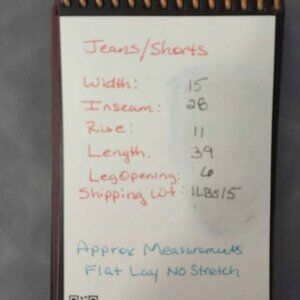 Jeans/Shorts
Width: 15
Inseam: 28
Rise: 11
Length. 39
Leg Opening: 6
Shipping Wt: 1LBS/5
Approx Measurements
Flat Lay No Stretch